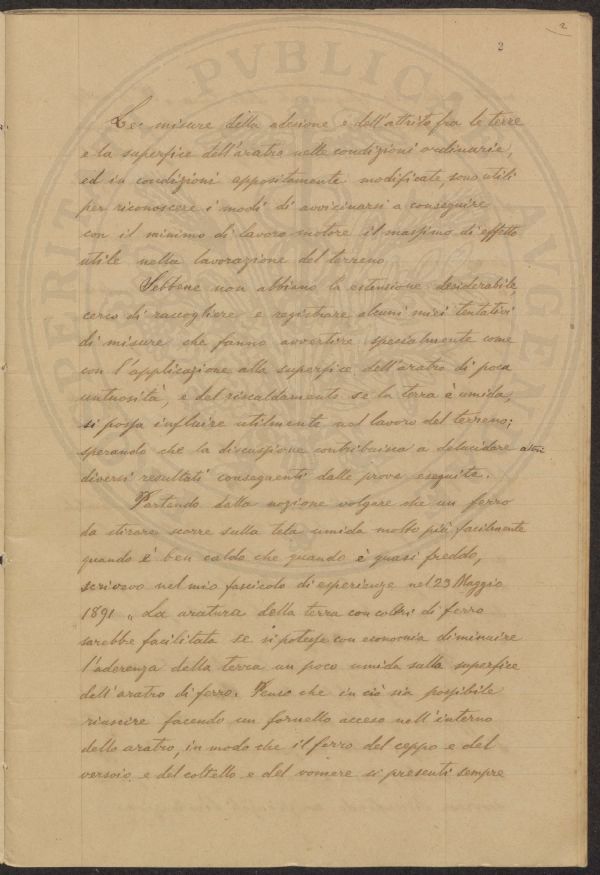 2
2
Le misure della adesione e dell'attrito fra le terre
e la superfice dell'aratro nelle condizioni ordinarie,
ed in condizioni appositamente modificate, sono utili
per riconoscere i modi di avvicinarsi a conseguire
con il minimo di lavoro motore il massimo di effetto
utile nella lavorazione del terreno.
Sebbene non abbiano la estensione desiderabile,
cerco di raccogliere e registrare alcuni miei tentativi
di misure che fanno avvertire specialmente come
con l'applicazione alla superfice dell'aratro di poca
untuosità e del riscaldamento se la terra è umida,
si possa influire utilmente nel lavoro del terreno;
sperando che la discussione contribuisca a delucidare
diversi resultati conseguenti dalle prove eseguite.
Partendo dalla nozione volgare che un ferro
da stirare scorre sulla tela umida molto più facilmente
quando è ben caldo che quando è quasi freddo,
scrivevo nel mio fascicolo di esperienze nel 23 Maggio
1891 „ La aratura della terra con coltri di ferro
sarebbe facilitata se si potesse con economia diminuire
l'aderenza della terra un poco umida sulla superfice
dell'aratro di ferro. Penso che in ciò sia possibile
riuscire facendo un fornello acceso nell'interno
dello aratro, in modo che il ferro del ceppo e del
versoio e del coltello e del vomere si presenti sempre
PVBLICA